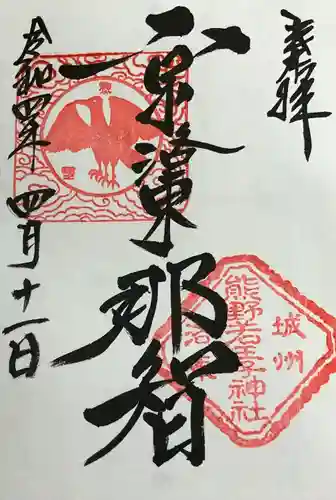 奉拝
京洛東
那智
令和四年四月十一日
城州
熊野若王子神社
洛東